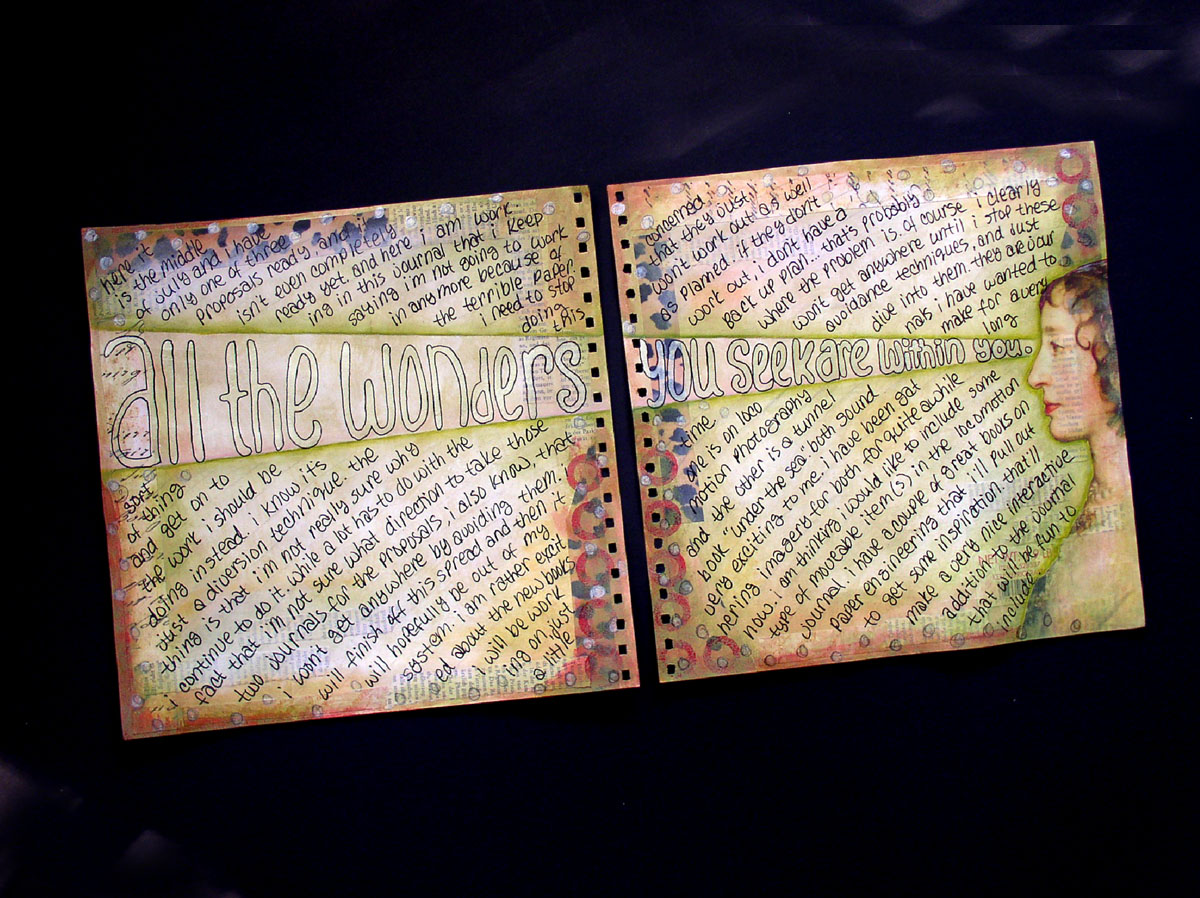 here it
is the middle
of july and i have
only one of three
proposals ready and it
isn't even completely
ready yet. and here i am work
ing in this journal that i keep
saying i'm not going to work
in anymore because of
the terrible paper
i need to stop
doing
this
all the wonders
sort
of thing
and get on to
the work i should be
doing instead. i know its
just a diversion technique. the
thing is that i'm not really sure why
i continue to do it. while a lot has to do with the
fact that i'm not sure what direction to take those
two journals for the proposals, i also know that
i won't get anywhere by avoiding them. i
will finish off this spread and then it
will hopefully be out of my
system. i am rather excit
ed about the new books
i will be work
ing on. just
a little
concerned
that they just
won't work out as well
as planned. if they don't
work out, i don't have a
back up plan...that's probably
where the problem is. of course i clearly
won't get anywhere until i stop these
avoidance techniques, and just
dive into them. they are jour
nals i have wanted to
make for a very
long
you seek are within you.
time
one is on loco
motion photography
and the other is a tunnel
book "under the sea" both sound
very exciting to me. i have been gat
hering imagery for both for quite awhile
now. i am thinking i would like to include some
type of moveable item(s) in the locomotion
journal. i have a couple of great books on
paper engineering that i'll pull out
to get some inspiration that'll
make a very nice interactive
addition to the journal
that will be fun to
include